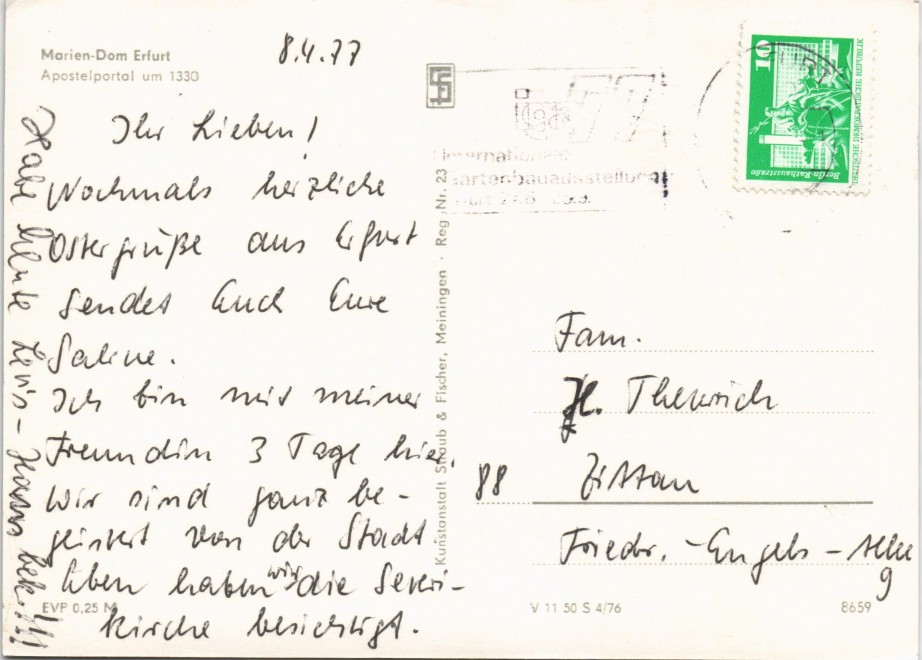 Marien-Dom Erfurt
Apostelportal um 1330
8.4.77
Ihr Lieben!
Nochmals herzliche
Ostergrüße aus Erfurt
sendet Euch Eure
Sabine.
Ich bin mit meiner
Freundin 3 Tage hier.
Wir sind ganz be-
geistert von der Stadt.
Eben haben wir die Severi-
kirche besichtigt.
Habe heute Levis-Hosen bek.!!!
EVP 0,25 M
Kunstanstalt Straub & Fischer, Meiningen · Reg. Nr. 23
Internationale
Gartenbauausstellung
10
DEUTSCHE DEMOKRATISCHE REPUBLIK
Berlin-Rathausstraße
Fam.
H.
88 Zittau
Friedr.-Engels-Allee
9
V 11 50 S 4/76
8659